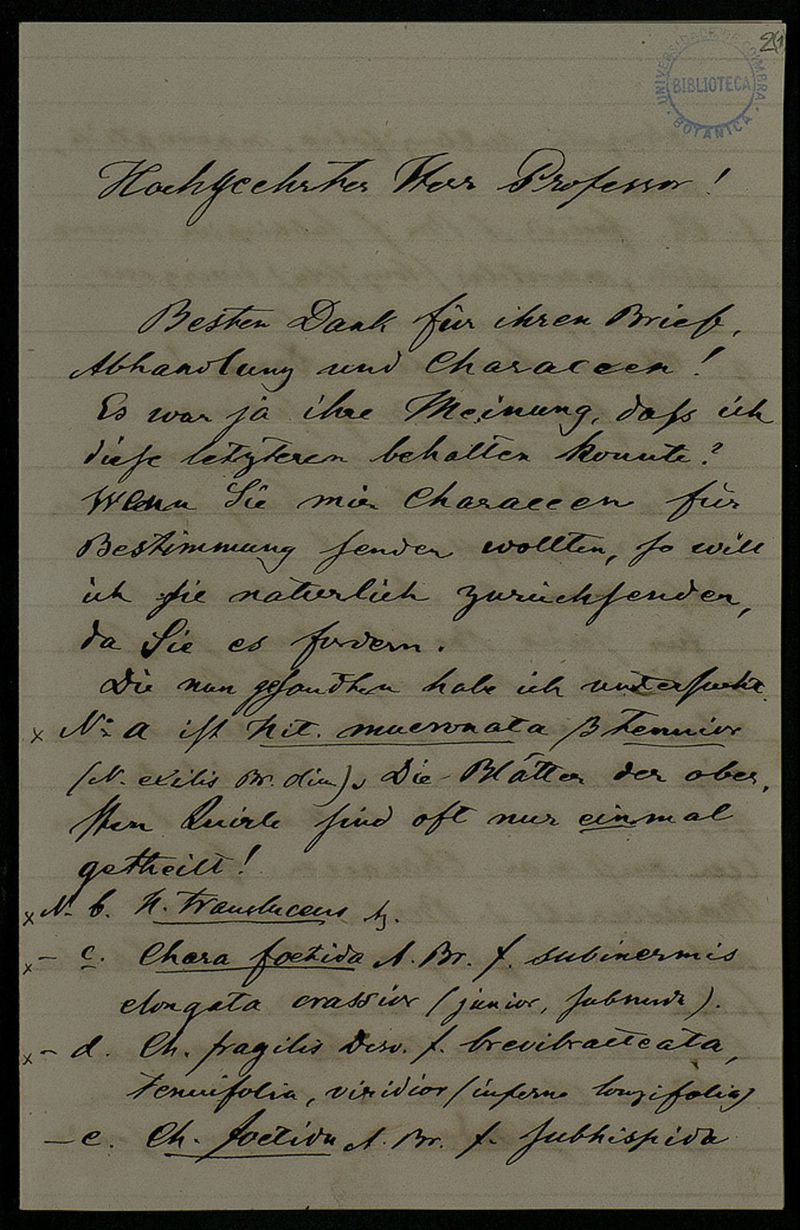 UNIVERSIDADE DE COIMBRA
BIBLIOTECA
BOTANICA
Hochgeehrter Herr Professor!
Besten Dank für ihren Brief,
Abhandlung und Characeen!
Es war ja ihre Meinung, daſs ich
dieſe letzteren behalten konnte?
Wenn Sie mir Characeen für
Bestimmung ſenden wollten, ſo will
ich ſie natürlich zurückſenden,
da Sie es fordern.
Die nun geſandten habe ich unterſucht.
x No a iſt Nit. mucronata β tenuior
(N. exilis Br. olim). Die Blätter der ober-
sten Quirle ſind oft nur einmal
getheilt!
x N. b. N. translucens
x – c. Chara foetida A. Br. f. subinermis
elongata crassior (junior, ſubnuda).
x – d. Ch. fragilis Desv. f. brevibracteata,
tenuifolia, viridior (inferne longifolia)
– e. Ch. foetida A. Br. f. ſubhispida